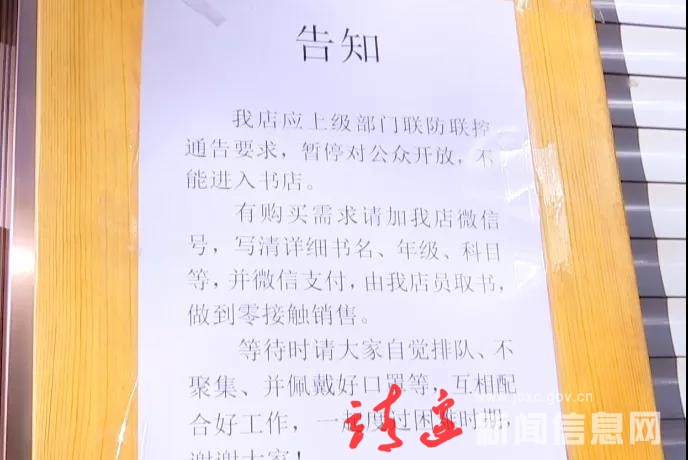 告知
我店应上级部门联防联控
通告要求，暂停对公众开放，不
能进入书店。
有购买需求请加我店微信
号，写清详细书名、年级、科目
等，并微信支付，由我店员取书，
做到零接触销售。
等待时请大家自觉排队、不
聚集、并佩戴好口罩等，互相配
合好工作，一起度过困难时期，
谢谢大家！
www.jbxc.gov.cn
新闻信息网